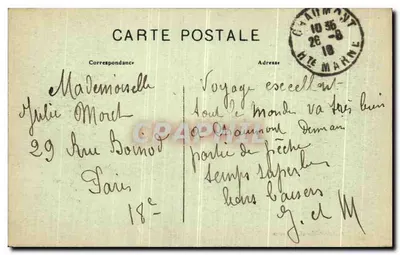 CARTE POSTALE
Correspondance
Adresse
CHAUMONT
10 35
26 - 8
18
Hte MARNE
Mademoiselle
Julie Moret
29 Rue Boinod
Paris
18e
Voyage excellent
tout le monde va très bien
à Chaumont Demain
partie de pêche
temps superbe
bons baisers
G. et M
CPRPHOTO